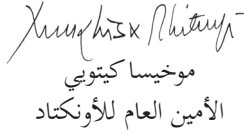 موخيسا كيتويي
الأمين العام للأونكتاد